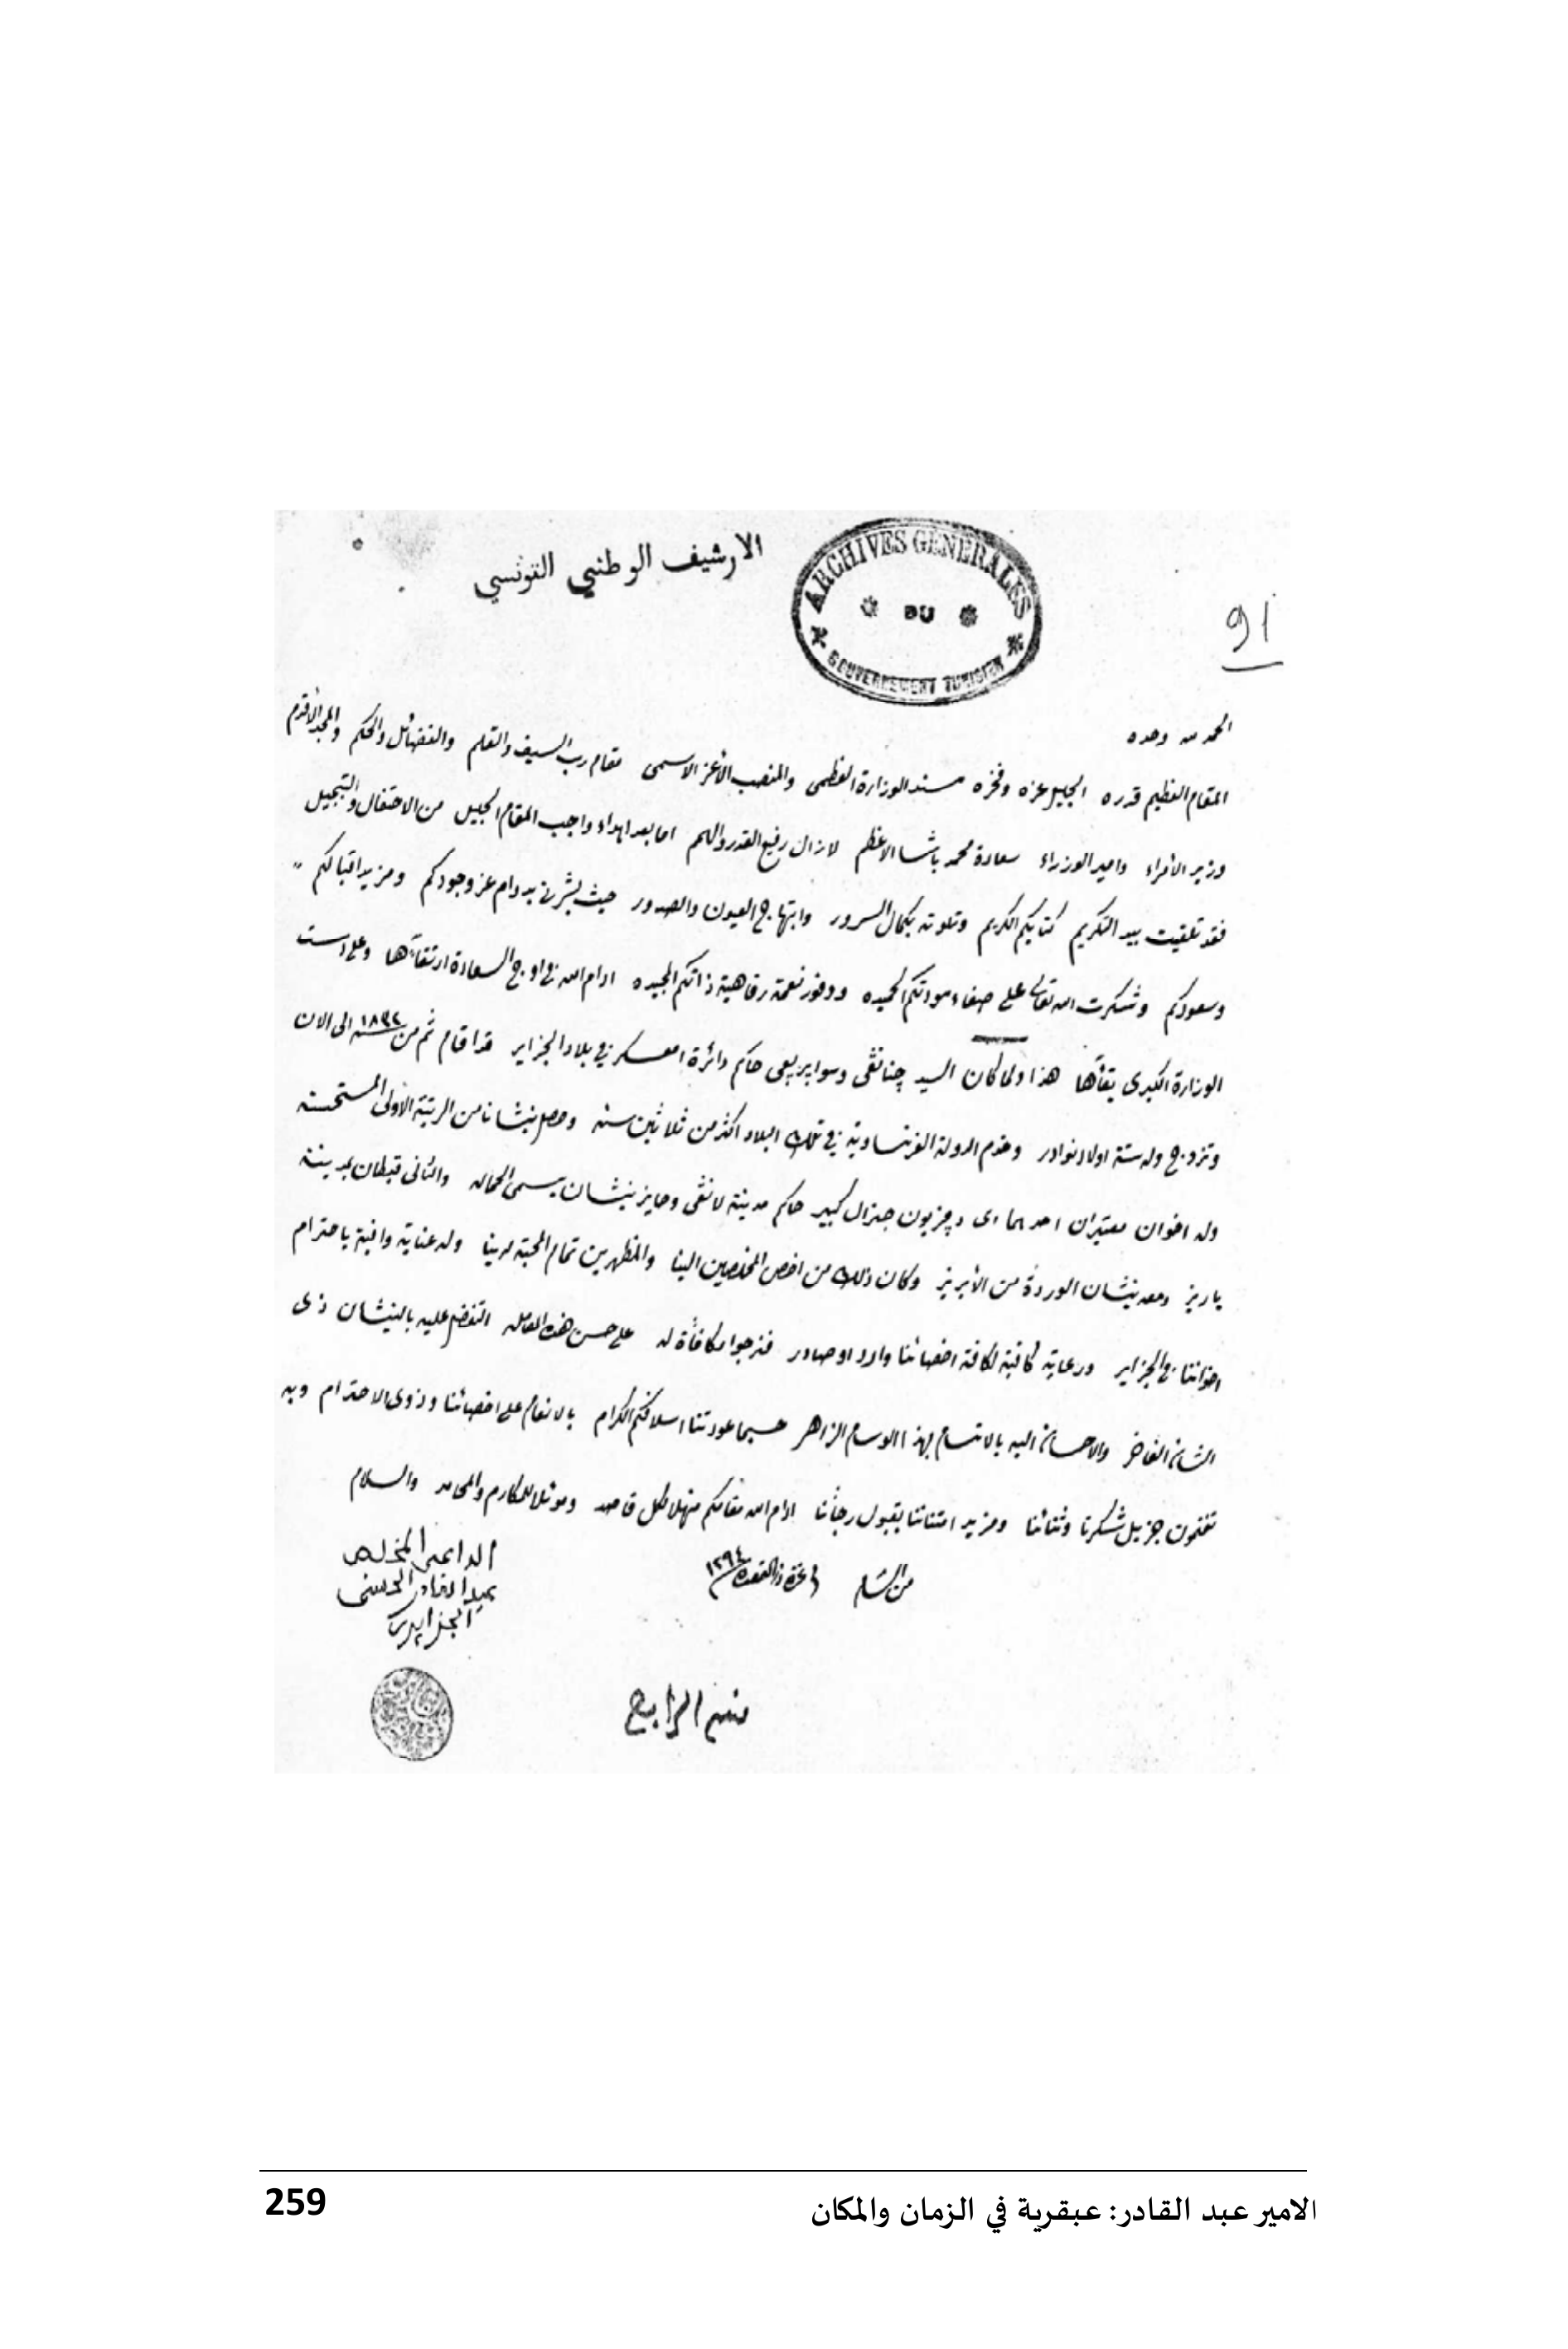 الارشيف الوطني التونسي
ARCHIVES GENERALES
DU
GOUVERNEMENT TUNISIEN
91
الحمد لله وحده
المقام العظيم قدره الجليل عزه وفخره مسند الوزارة العظمى والمنصب الأعز الاسمى مقام رب السيف والقلم والفضائل والحكم والمجد الأقدم
وزير الأمراء وامير الوزراء سعادة محمد باشا الاعظم لازال رفيع القدر والهمم اما بعد اهداء واجب المقام الجليل من الاحتفال والتبجيل
فقد تلقيت بيد التكريم كتابكم الكريم وتلوته بكمال السرور وابتهاج العيون والصدور حيث بشرني بدوام عز وجودكم ومزيد اقبالكم
وسعودكم وشكرت الله تعالى على صفاء مودتكم الحميده ووفور نعمة رفاهية ذاتكم المجيده ادام الله في اوج السعادة ارتقآءها وعلى دست
الوزارة الكبرى بقآها هذا ولما كان السيد حاكم دائرة امعسكر في بلاد الجزاير قد اقام ثم من سنة ١٨٤٢ الى الان
وتزوج وله ستة اولاد نوادر وخدم الدولة الفرنساوية في تلك البلاد اكثر من ثلاثين سنه وحصل نيشانا من الرتبة الأولى المستحسنه
وله اخوان معتبران احدهما جنرال كبير حاكم مدينة وحايز نيشان يسمى والثاني قبطان بمدينة
باريز ومعه نيشان الوردة من الأبريز وكان ذلك من اخص المخلصين الينا والمظهرين تمام المحبة لدينا وله عناية وافية باحترام
اخواننا في الجزاير ورعاية كافية لكافة اخصائنا وارد او صادر فنرجوا مكافأة له على حسن هذه المعامله التفضل عليه بالنيشان ذي
الشان الفاخر والاحسان اليه بالاتسام بهذا الوسام الزاهر حسبما عودتنا اسلافكم الكرام بالانعام على اخصائنا وذوي الاحترام وبه
تغتنمون جزيل شكرنا وثنائنا ومزيد امتناننا بقبول رجائنا ادام الله مقامكم منهلا لكل قاصد وموئلا للمكارم والمحامد والسلام
من الشام في غرة ذي القعدة سنة ١٢٩٤
الداعي المخلص
عبد القادر الحسني
الجزايري
259
الامير عبد القادر: عبقرية في الزمان والمكان